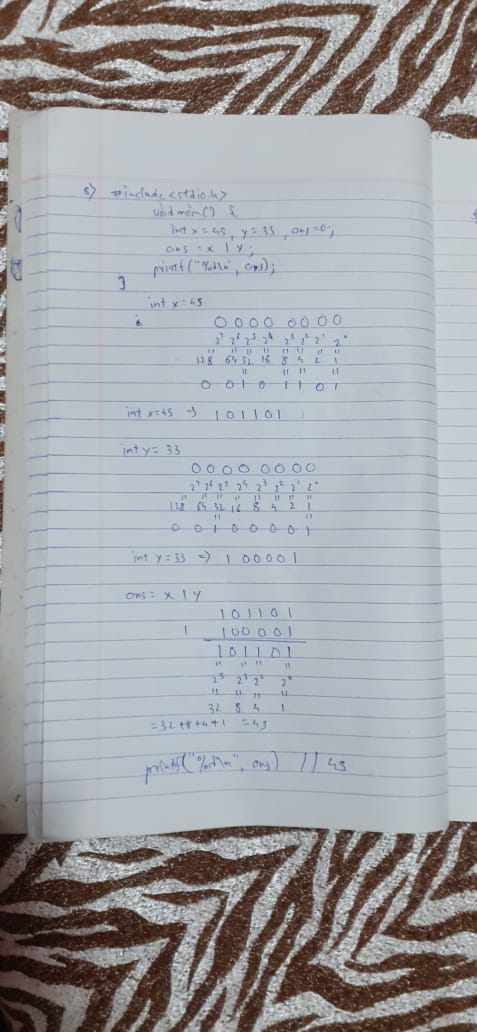 8) #include<stdio.h>
void main() {
int x = 45, y = 33, ans = 0;
ans = x | y;
printf("%d\n", ans);
}
int x = 45
0 0 0 0 0 0 0 0
2⁷ 2⁶ 2⁵ 2⁴ 2³ 2² 2¹ 2⁰
128 64 32 16 8 4 2 1
0 0 1 0 1 1 0 1
int x = 45 => 1 0 1 1 0 1
int y = 33
0 0 0 0 0 0 0 0
2⁷ 2⁶ 2⁵ 2⁴ 2³ 2² 2¹ 2⁰
128 64 32 16 8 4 2 1
0 0 1 0 0 0 0 1
int y = 33 => 1 0 0 0 0 1
ans = x | y
1 0 1 1 0 1
| 1 0 0 0 0 1
1 0 1 1 0 1
2⁵ 2³ 2² 2⁰
32 8 4 1
= 32 + 8 + 4 + 1 = 45
printf("%d\n", ans) // 45